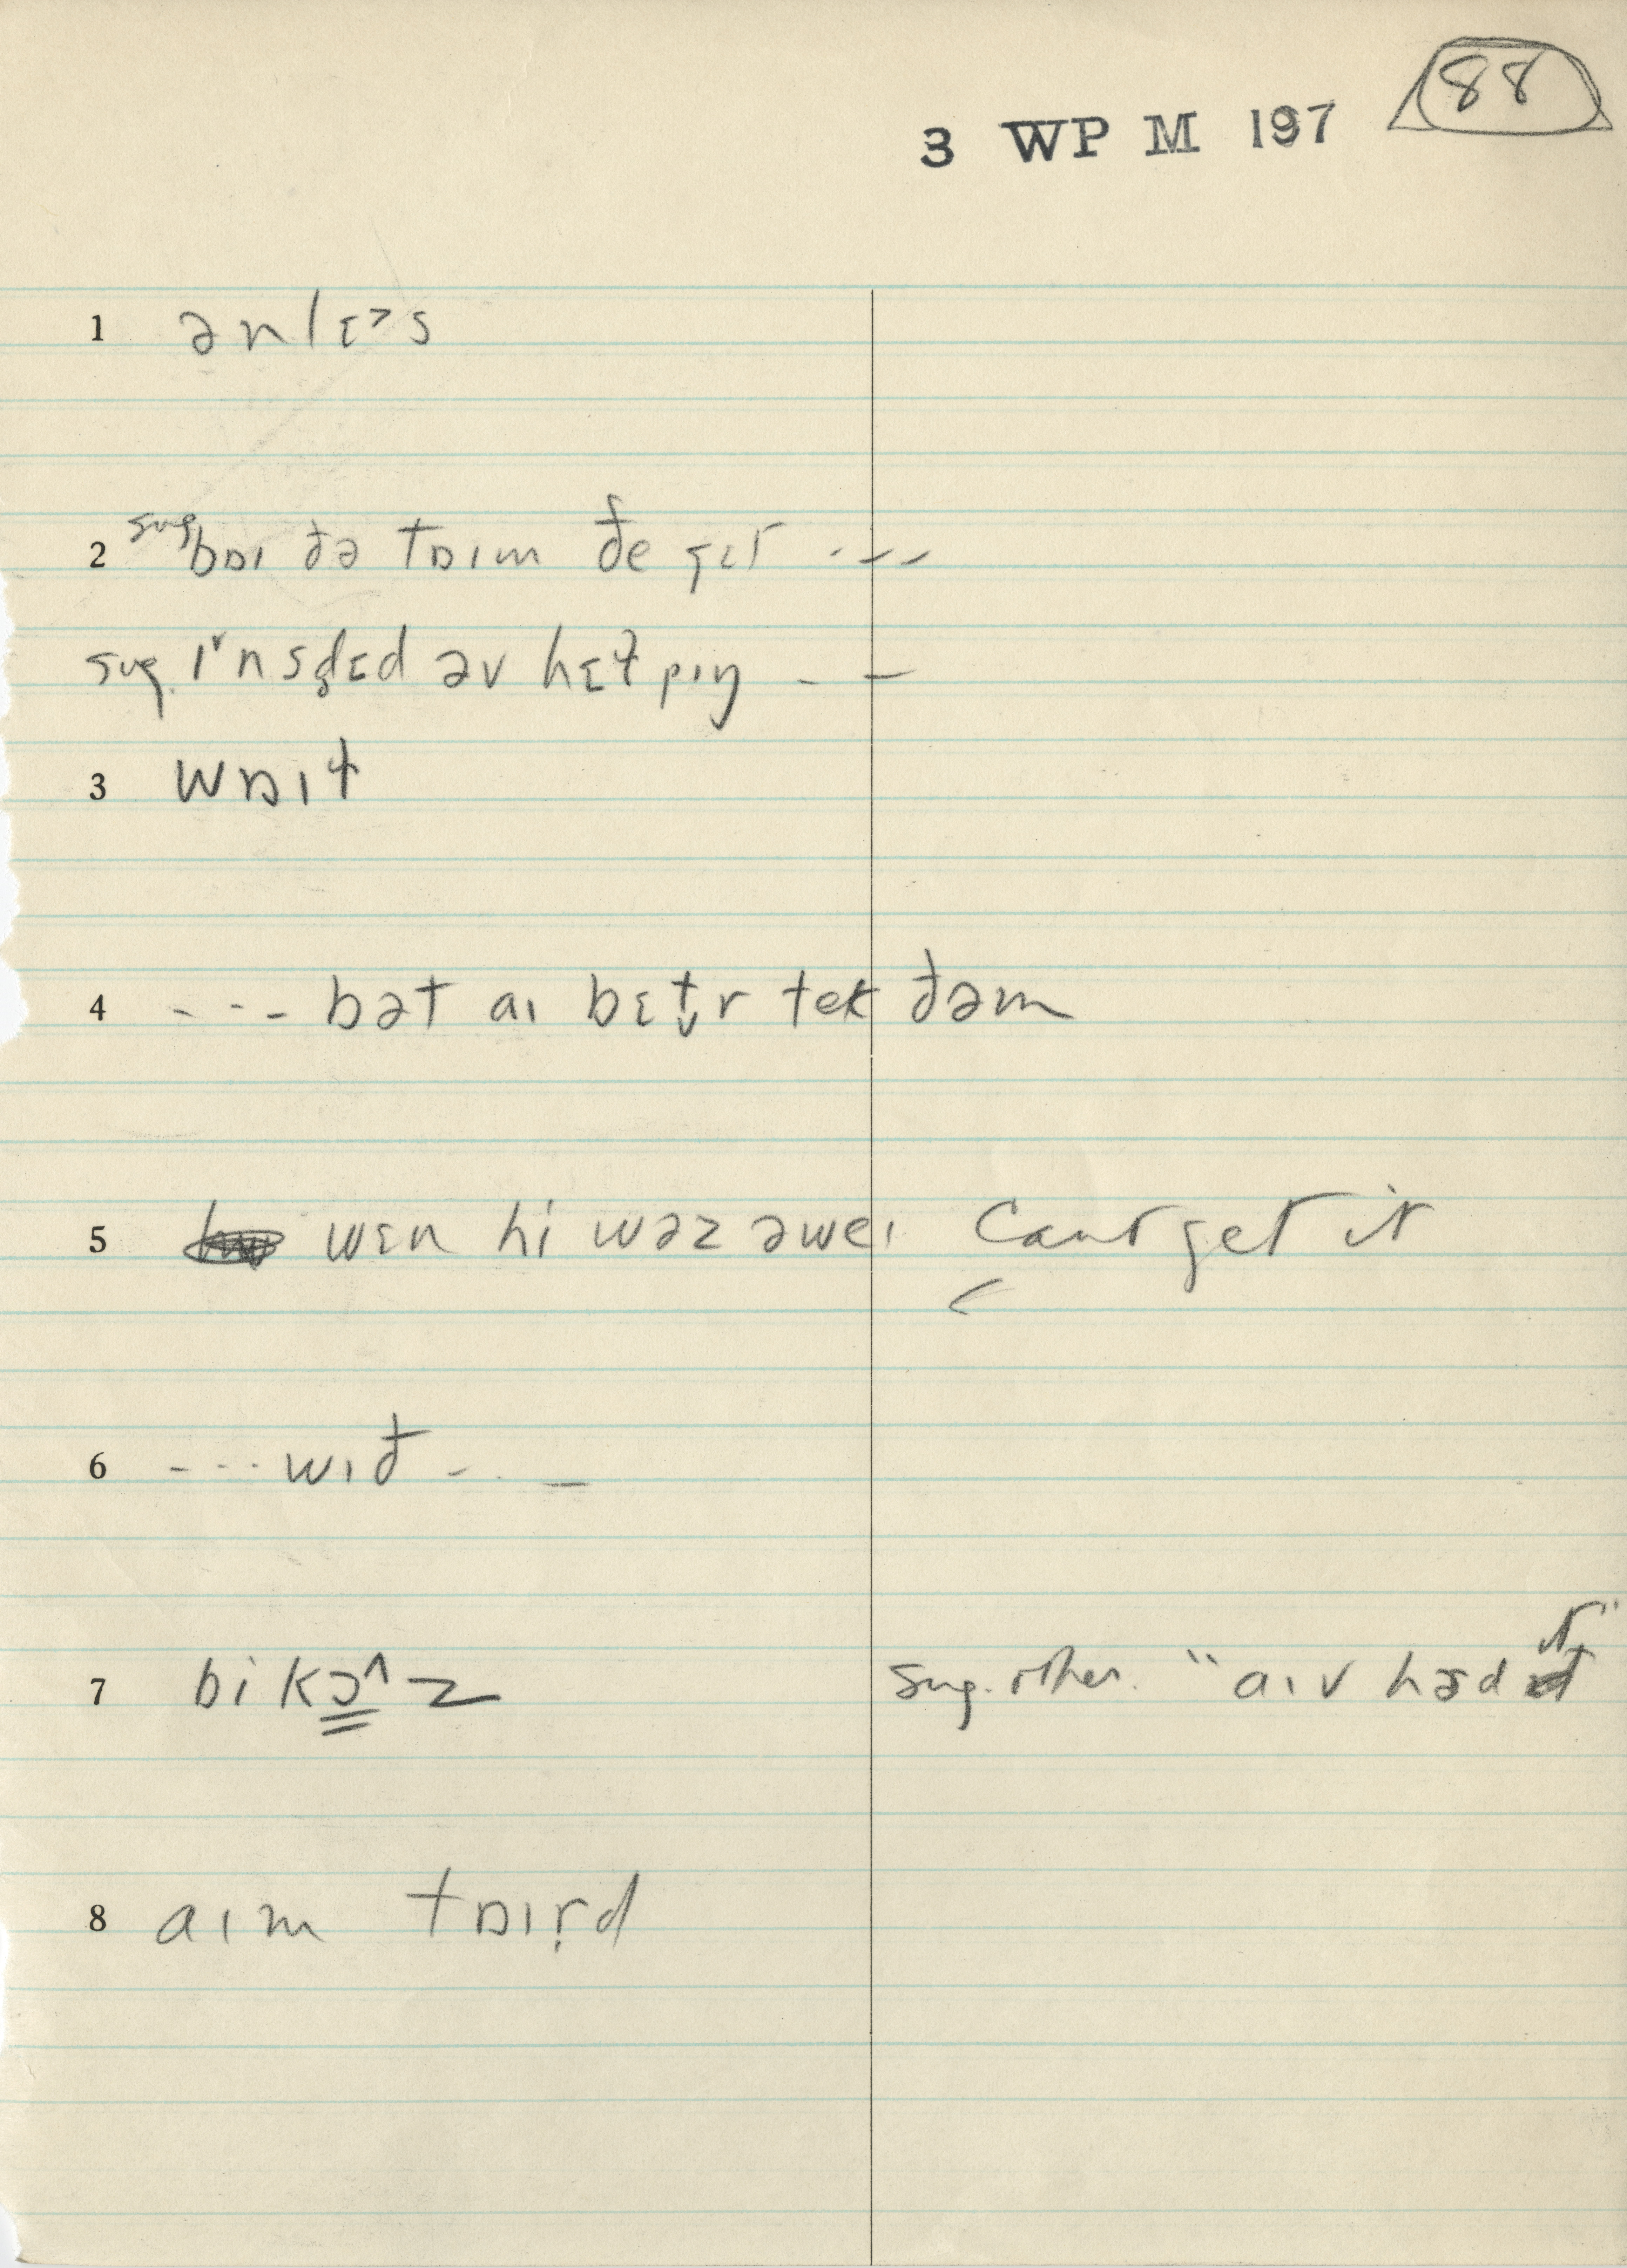 88
3 WP M 197
1 ənlɛ˃s
2 sug bɒɪ ðə tɒɪm ðe get ----
sug. ɪ˅nsd̥ɛd əv hɛɫpɪŋ - -
3 wɒɪɫ
4 --- bət aɪ bɛt̬r tek ðəm
5 wɛn hi wəz əweɪ Cant get it
<
6 --- wɪð - - -
7 bikɔ^z sug. other. "aɪv həd ɪt"
8 aɪm tɒɪr̩d